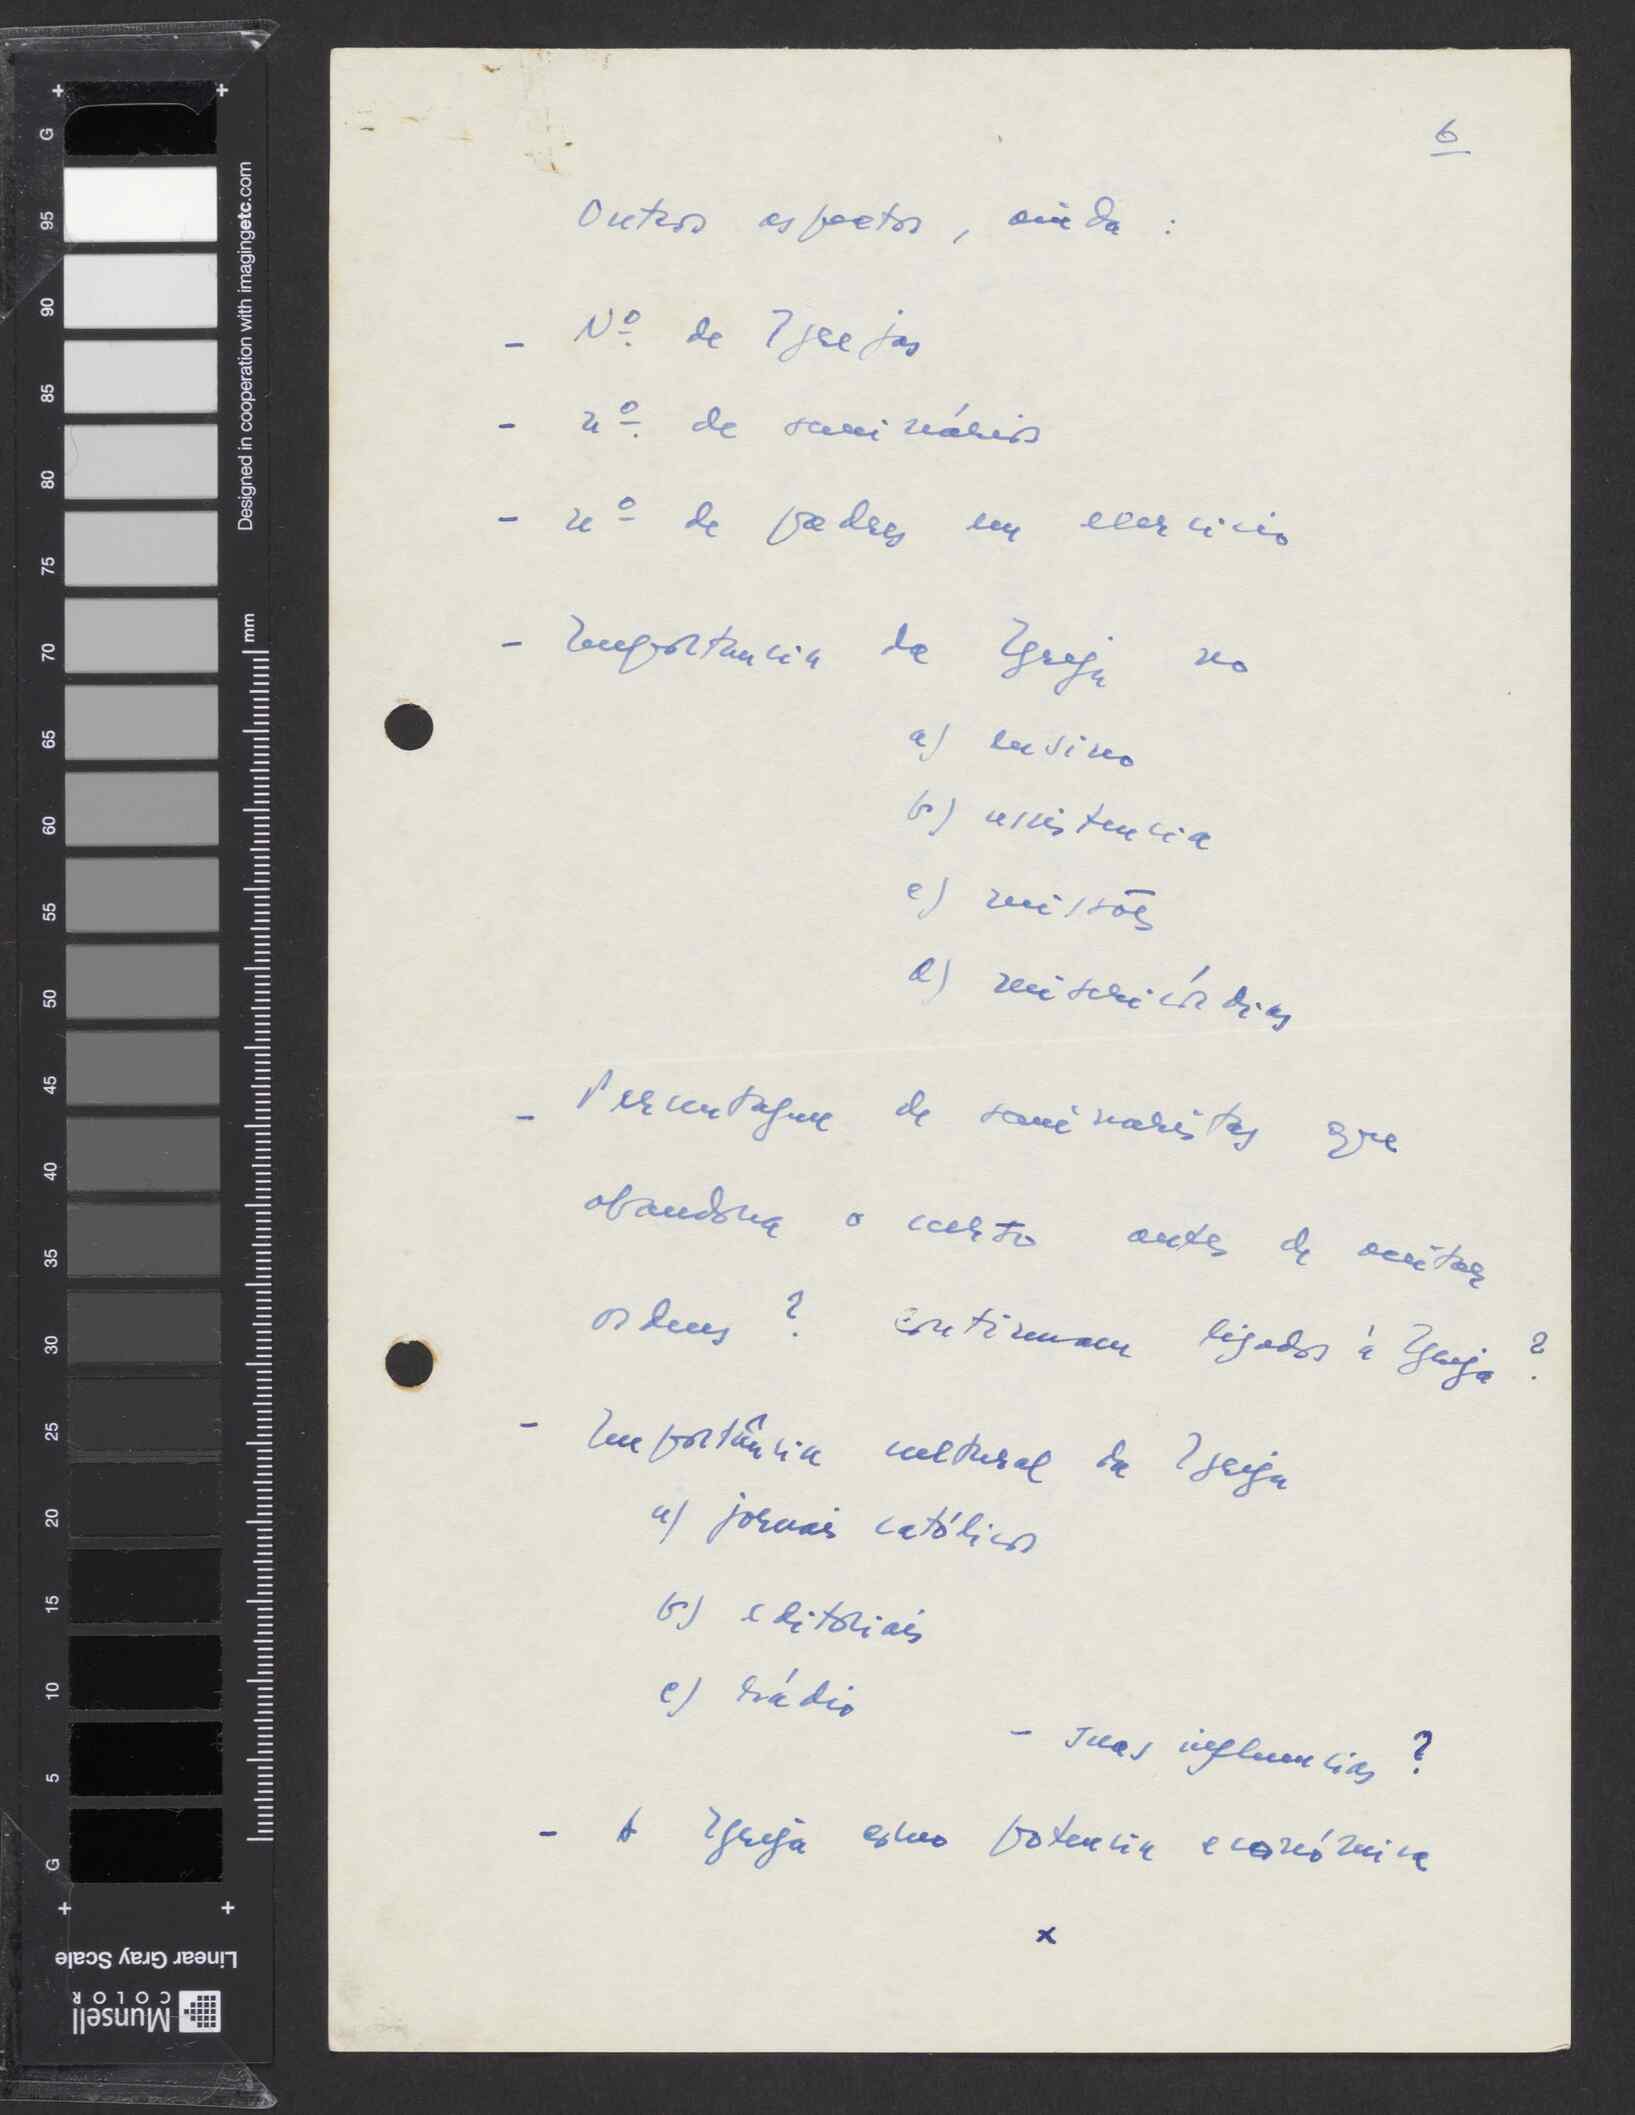 6
Outros aspectos, ainda :
- Nº. de Igrejas
- nº. de seminários
- nº de padres em exercicio
- Importancia da Igreja no
a) ensino
b) assistencia
c) missões
d) misericórdias
- Percentagem de seminaristas que
abandona o curso antes de aceitar
ordens ? Continuam ligados à Igreja ?
- Importância cultural da Igreja
a) jornais católicos
b) editoriais
c) rádio
- suas influencias ?
- A Igreja como potencia económica
x
G
95
90
85
80
75
70
65
60
55
50
45
40
35
30
25
20
15
10
5
G
Designed in cooperation with imagingetc.com
mm
Linear Gray Scale
Munsell
COLOR